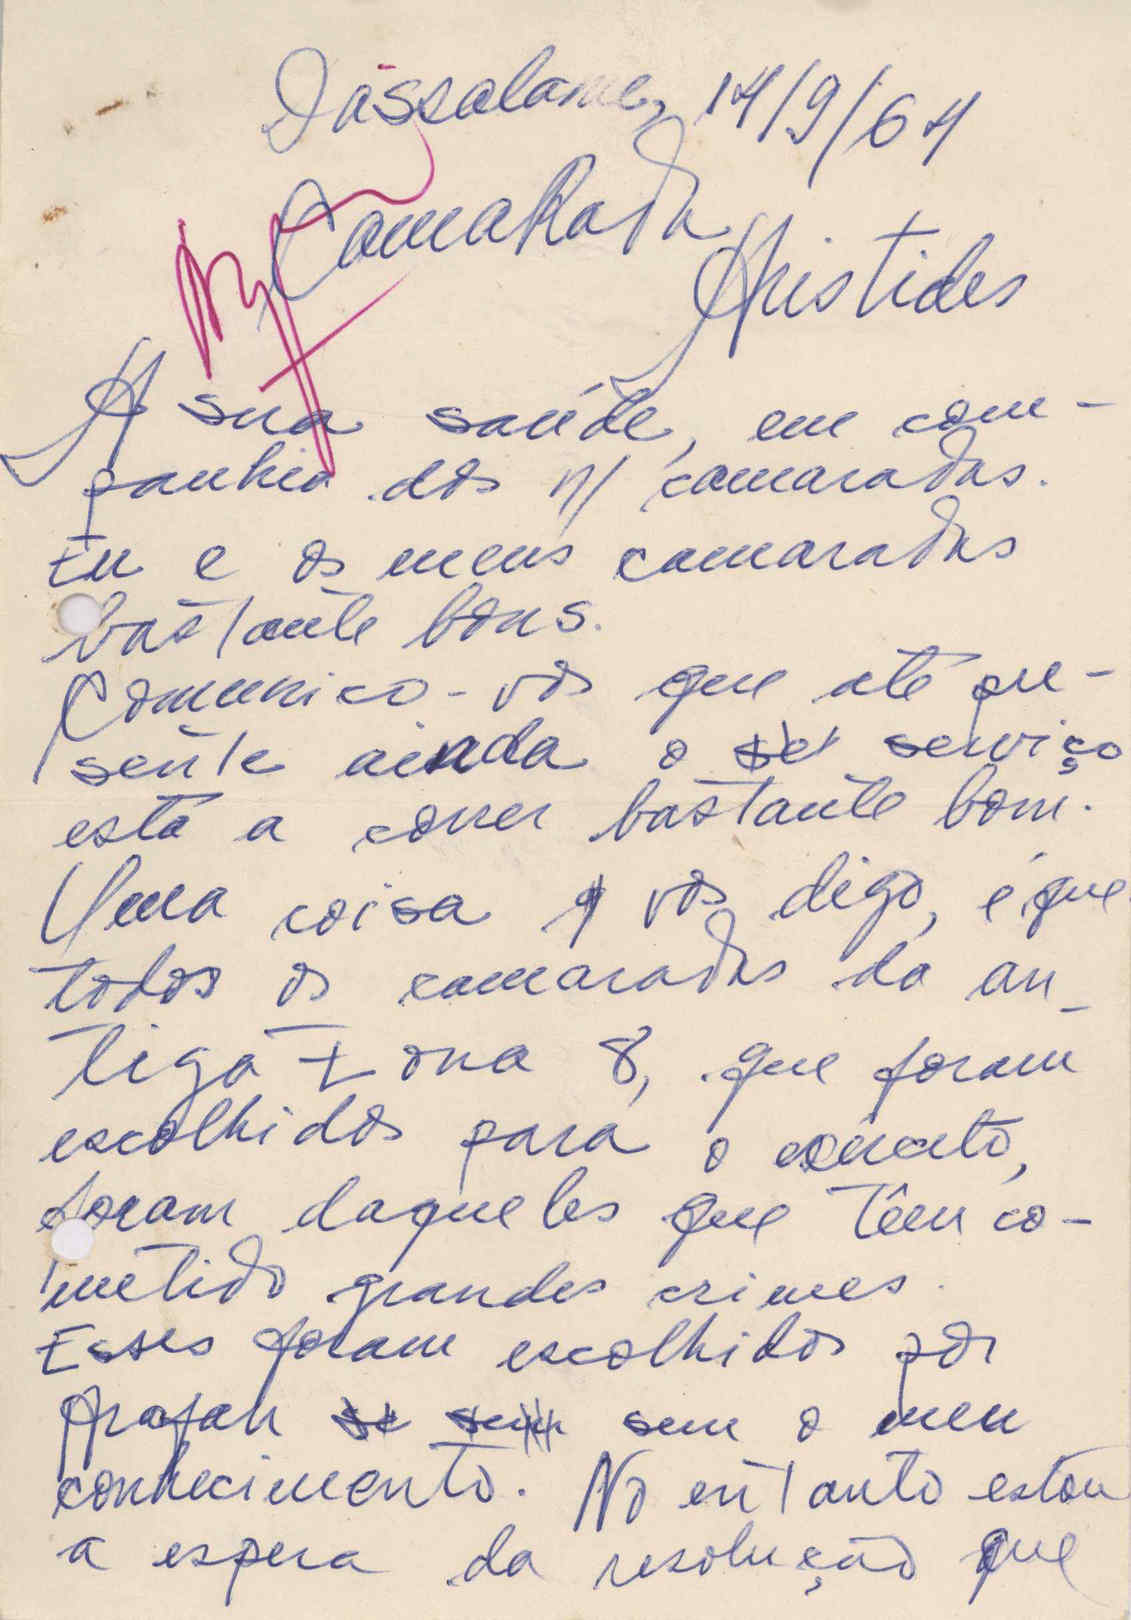 Dássalame, 14/9/64
CamaRada
Aristides
A sua saúde, em com-
panhia dos n/ camaradas.
Eu e os meus camaradas
bastante bons.
Comunico-vos que até pre-
sente ainda o se serviço
está a correr bastante bom.
Uma coisa q vos digo, é que
todos os camaradas da an-
tiga Zona 8, que foram
escolhidos para o exército,
foram daqueles que têm co-
metido grandes crimes.
Esses foram escolhidos por
sem o meu
conhecimento. No entanto estou
a espera da resolução que